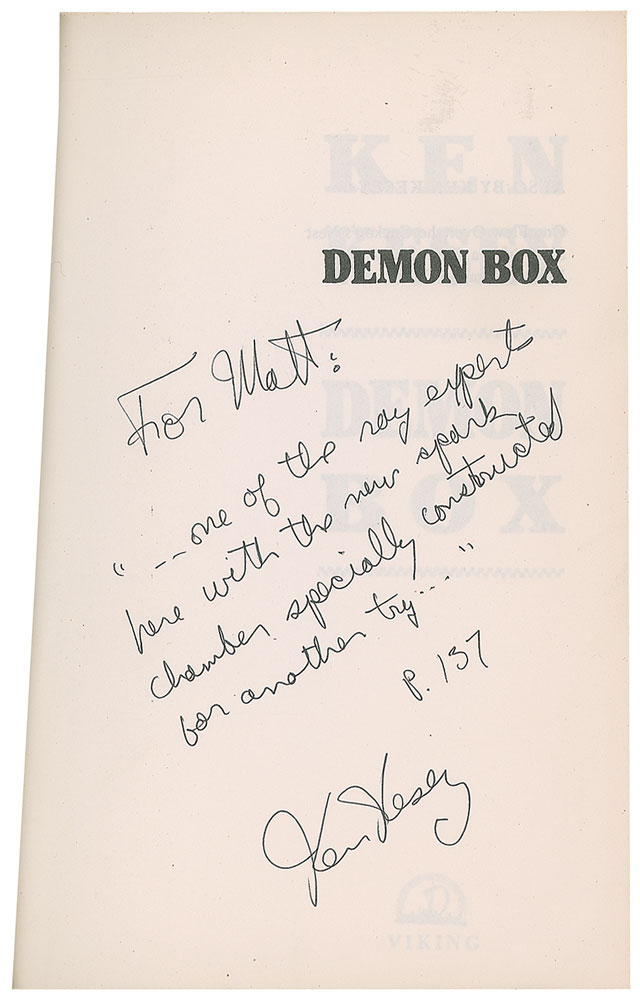 DEMON BOX
For Matt:
"--one of the ray experts
here with the new spark
chamber specially constructed
for another try..."
p. 137
Ken Kesey
KEN
ALSO BY KEN KESEY
DEMON
BOX
VIKING